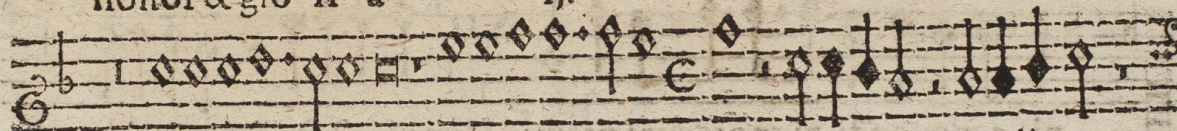 honor & glo ri a ij.